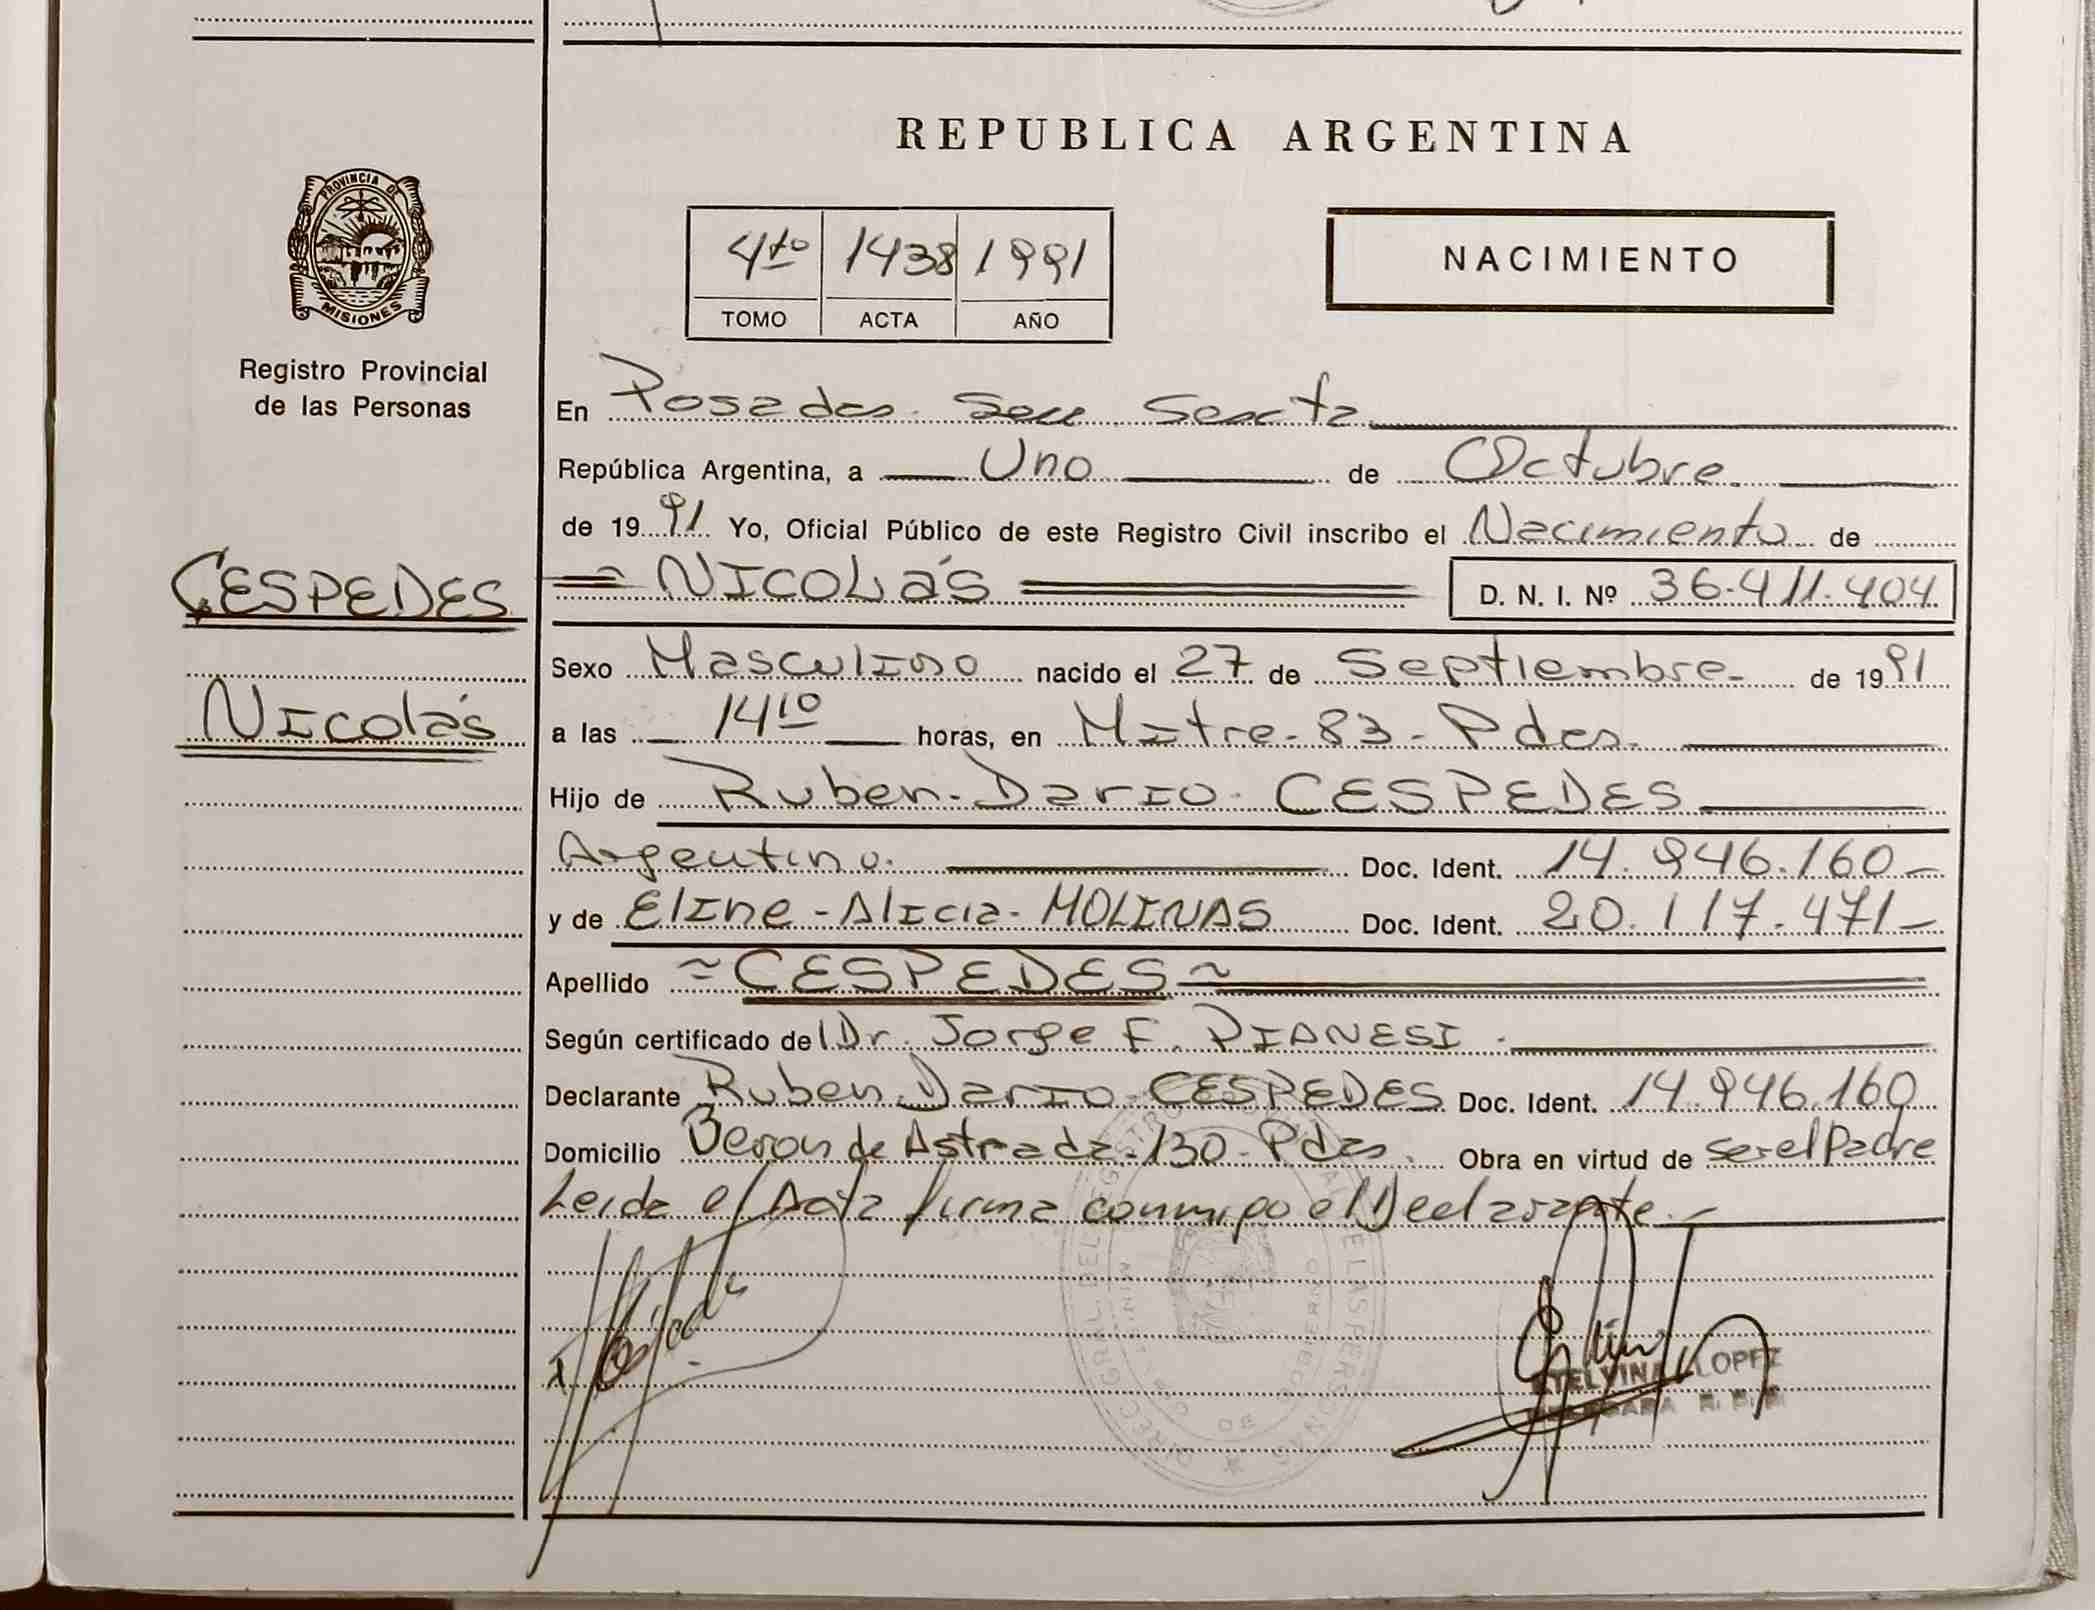 REPUBLICA ARGENTINA
PROVINCIA DE
MISIONES
Registro Provincial
de las Personas
4to 1438 1991
TOMO ACTA AÑO
NACIMIENTO
En Posadas Secc Sexta
República Argentina, a Uno de Octubre
de 1991 Yo, Oficial Público de este Registro Civil inscribo el Nacimiento de
CESPEDES
NICOLÁS D. N. I. Nº 36.411.404
Sexo Masculino nacido el 27 de Septiembre de 1991
Nicolás
a las 14 10 horas, en Mitre-83-Pdas.
Hijo de Ruben-Dario-CESPEDES
Argentino. Doc. Ident. 14.946.160-
y de Eline-Alicia-MOLINAS Doc. Ident. 20.117.471-
Apellido ~CESPEDES~
Según certificado del Dr. Jorge F. PIANESI.
Declarante Ruben Dario CESPEDES Doc. Ident. 14.946.160
Domicilio Beron de Astrada-130-Pdas. Obra en virtud de ser el Padre
Leida el Acta firma conmigo el Declarante.-
ETELVINA LOPEZ